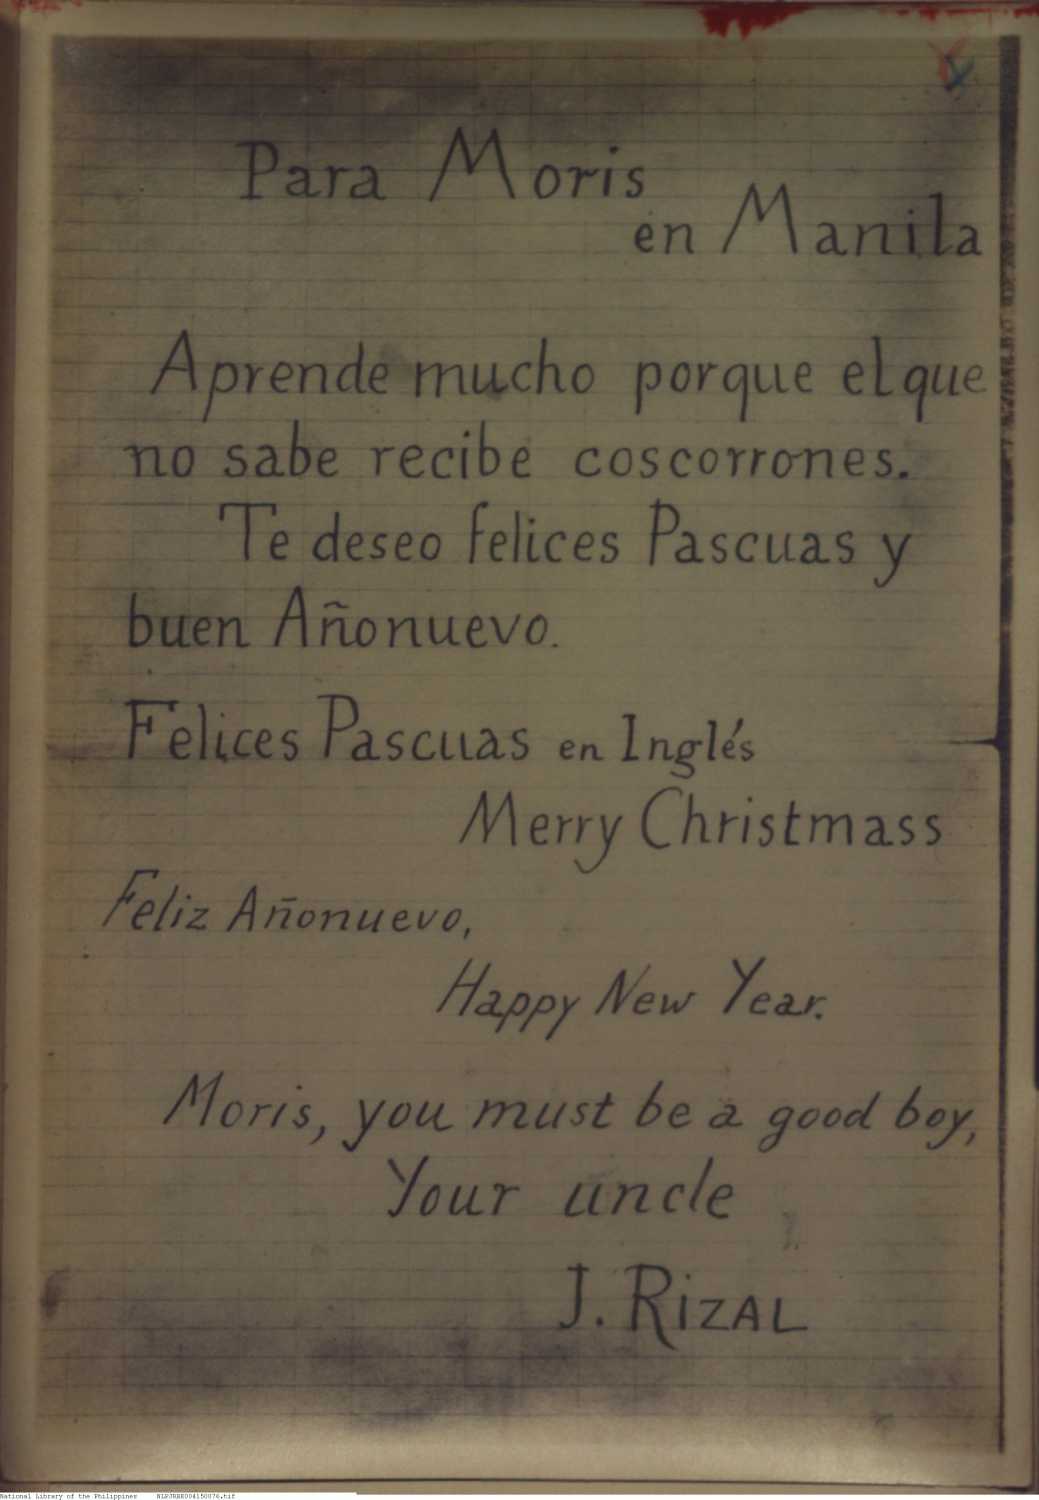 Para Moris
en Manila
Aprende mucho porque el que
no sabe recibe coscorrones.
Te deseo felices Pascuas y
buen Añonuevo.
Felices Pascuas en Inglés
Merry Christmass
Feliz Añonuevo,
Happy New Year.
Moris, you must be a good boy,
Your uncle
J. RIZAL
National Library of the Philippines